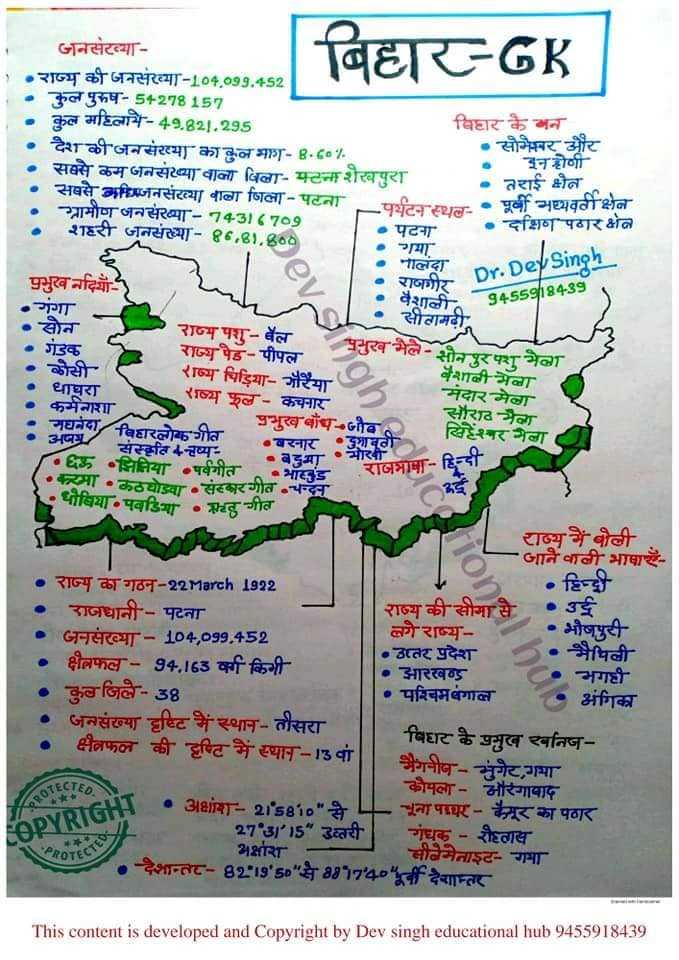 बिहार-GK
जनसंख्या-
• राज्य की जनसंख्या-104,099.452
• कुल पुरुष- 54278157
• कुल महिलायें- 49.821.295
• देश की जनसंख्या का कुल भाग- 8.60%
• सबसे कम जनसंख्या वाला जिला- पटना शेखपुरा
• सबसे अधिक जनसंख्या वाला जिला- पटना
• ग्रामीण जनसंख्या- 74316709
• शहरी जनसंख्या- 86,81,800
बिहार के वन
• सोमेश्वर और
दून श्रेणी
• तराई क्षेत्र
• पूर्वी मध्यवर्ती क्षेत्र
• दक्षिण पठार क्षेत्र
पर्यटन स्थल-
• पटना
• गया
• नालंदा
• राजगीर
• वैशाली
• सीतामढ़ी
Dr. Dev Singh
9455918439
प्रमुख नदियाँ-
• गंगा
• सोन
• गंडक
• कोसी
• घाघरा
• कर्मनाशा
•
• अजय
राज्य पशु- बैल
राज्य पेड- पीपल
राज्य चिड़िया- गौरैया
राज्य फूल- कचनार
प्रमुख मेले- सोनपुर पशु मेला
वैशाली मेला
मंदार मेला
सौराठ मेला
सिंहेश्वर मेला
प्रमुख बाँध
• बरनार
• बडुआ
• चन्दन
राजभाषा- हिन्दी
उर्दू
बिहारलोक गीत
संस्कृति + नृत्य-
• छऊ • झिझिया • पर्वगीत
• करमा • कठघोड़वा • संस्कार गीत
• धोबिया • पवड़िया • ऋतु गीत
राज्य में बोली
जाने वाली भाषाएँ-
• हिन्दी
• उर्दू
• भोजपुरी
• मैथिली
• मगही
• अंगिका
• राज्य का गठन-22March 1922
• राजधानी- पटना
• जनसंख्या- 104,099.452
• क्षेत्रफल- 94,163 वर्ग किमी
• कुल जिले- 38
• जनसंख्या दृष्टि में स्थान- तीसरा
• क्षेत्रफल की दृष्टि में स्थान-13 वां
राज्य की सीमा से
लगे राज्य-
• उत्तर प्रदेश
• झारखण्ड
• पश्चिम बंगाल
बिहार के प्रमुख खनिज-
मैंगनीज- मुंगेर,गया
कोयला- औरंगाबाद
चूना पत्थर- कैमूर का पठार
गंधक- रोहतास
गया
• अक्षांश- 21°58'10" से
27°31'15" उत्तरी
अक्षांश
• देशान्तर- 82°19'50"से 88°17'40"पूर्वी देशान्तर
Dev singh educational hub
PROTECTED
COPYRIGHT
PROTECTED
This content is developed and Copyright by Dev singh educational hub 9455918439